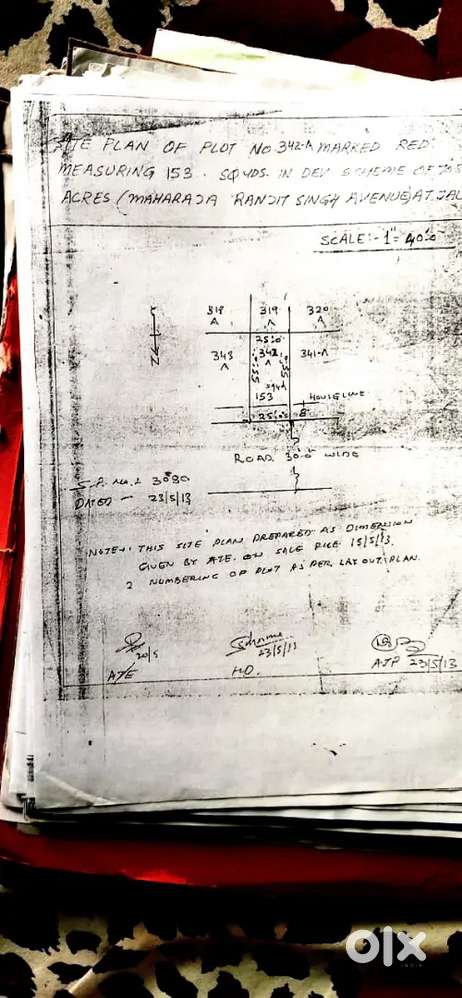 SITE PLAN OF PLOT NO 342-A MARKED RED
MEASURING 153. SQYDS. IN DEV SCHEME OF 70.5
ACRES (MAHARAJA RANJIT SINGH AVENUE) AT JAL
SCALE:- 1" = 40'-0"
318 A 319 A 320 A
25'-0"
343 A 342 A 341-A
55' 55'
sqyd
153
HOUSE LINE
25'-0" 8'
ROAD 30'-0" WIDE
N
S.P. No. 3090
DATED - 23/5/13
NOTE:- 1 THIS SITE PLAN PREPARED AS DIMENSION
GIVEN BY ATE. ON SALE FILE 15/5/13.
2 NUMBERING OF PLOT AS PER LAY OUT PLAN.
20/5 23/5/13
ATE H.D. ATP 23/5/13
olx
INDIA